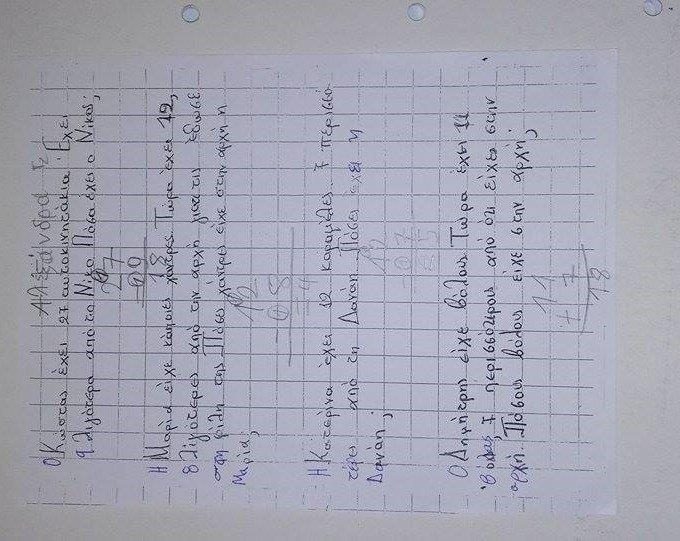 Αλεξάνδρα Σ
Ο Κώστας έχει 27 αυτοκινητάκια. Έχει
9 λιγότερα από το Νίκο. Πόσα έχει ο Νίκος;
27
09
18
Η Μαρία είχε κάποιες χάντρες. Τώρα έχει 12,
8 λιγότερες από την αρχή γιατί τις έδωσε
στη φίλη της. Πόσες χάντρες είχε στην αρχή η
Μαρία;
12
-08
=4
Η Κατερίνα έχει 12 καραμέλες, 7 περισσό-
τερες από τη Δανάη. Πόσες έχει η
Δανάη;
12
-07
Ο Δημήτρης είχε βόλους. Τώρα έχει 11
βόλους, 7 περισσότερους από ότι είχε στην
αρχή. Πόσους βόλους είχε στην αρχή;
11
+ 7
18